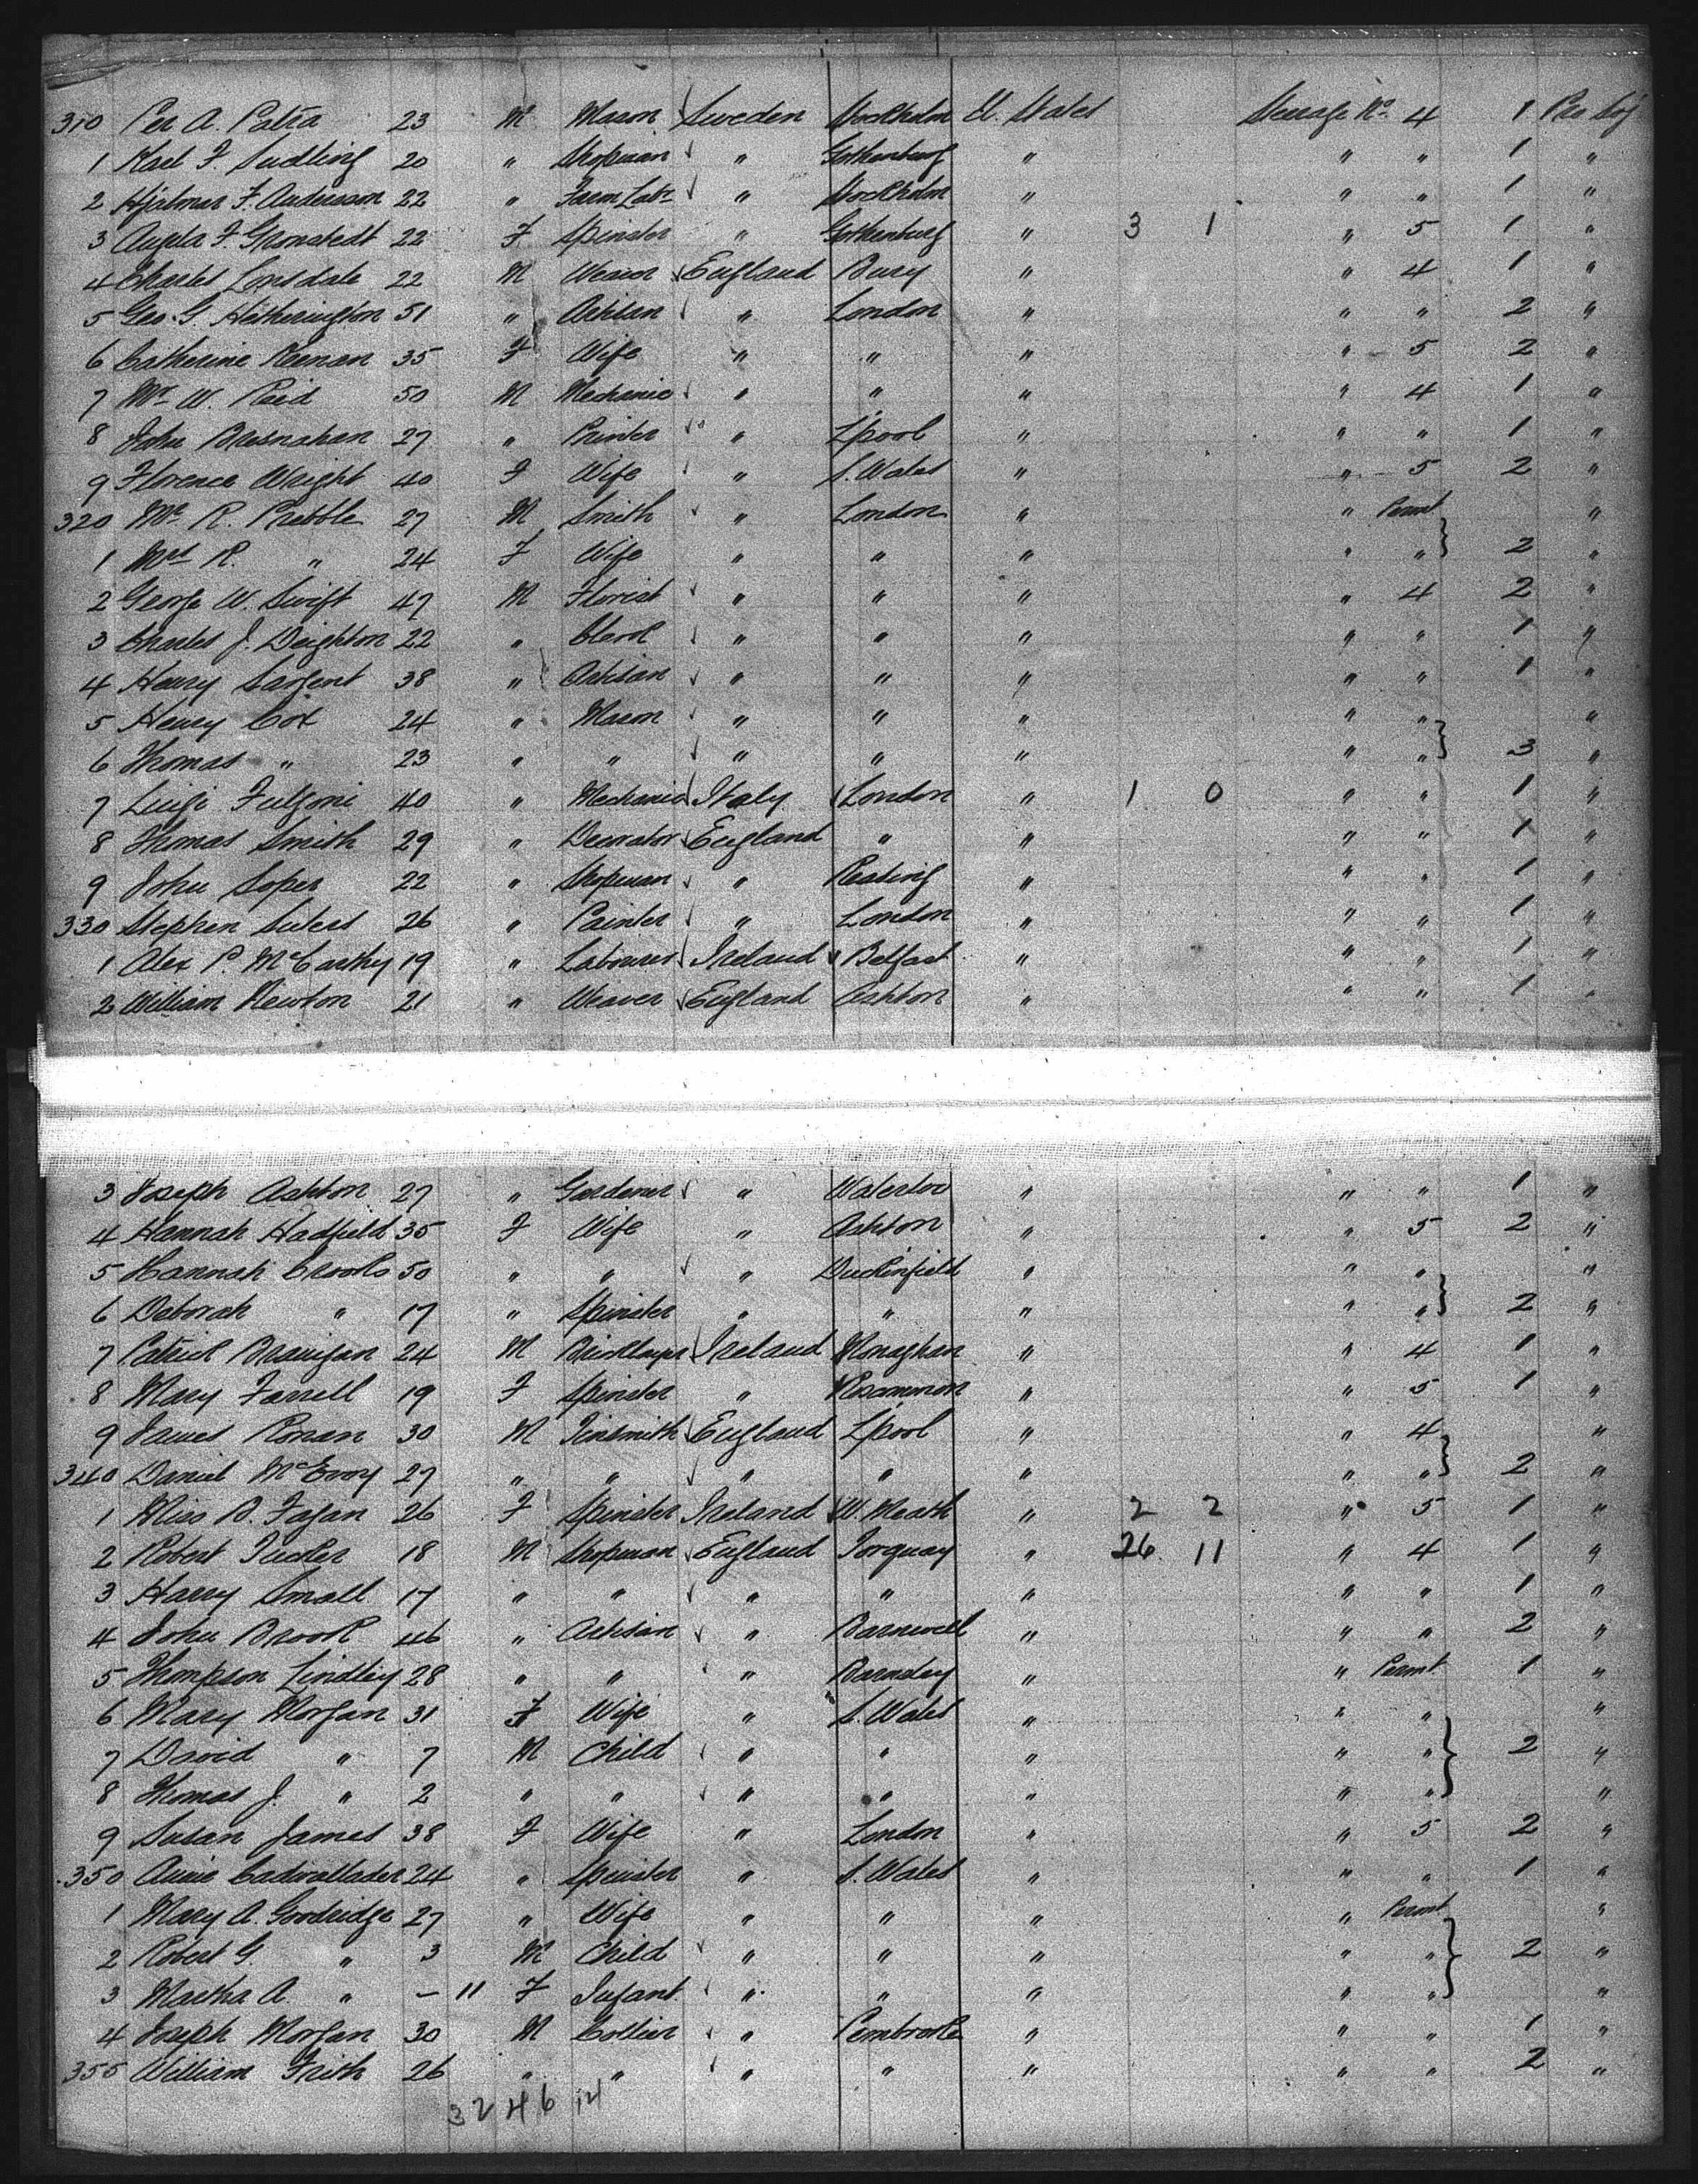 310 Per A. Patra 23 M Mason Sweden Stockholm U. States Steerage No. 4 1 Pro Soj
1 Karl F. Sudling 20 " Shopman " Gothenburg " " " 1 "
2 Hjalmar F. Andersson 22 " Farm Labr " Stockholm " " " 1 "
3 Augusta F. Gronstedt 22 F Spinster " Gothenburg " 3 1 " 5 1 "
4 Charles Lonsdale 22 M Weaver England Bury " " 4 1 "
5 Geo. G. Hetherington 51 " Artisan " London " " " 2 "
6 Catherine Keenan 35 F Wife " " " " 5 2 "
7 Mr W. Reid 50 M Mechanic " " " " 4 1 "
8 John Bresnahan 27 " Printer " L'pool " " " 1 "
9 Florence Wright 40 F Wife " S. Wales " " 5 2 "
320 Mr R. Prebble 27 M Smith " London " " Permt "
1 Mrs R. " 24 F Wife " " " " " } 2 "
2 George W. Swift 47 M Florist " " " " 4 2 "
3 Charles J. Deighton 22 " Clerk " " " " " 1 "
4 Henry Sargent 38 " Artisan " " " " " 1 "
5 Henry Cox 24 " Mason " " " " " "
6 Thomas " 23 " " " " " " " } 3 "
7 Luigi Fulgoni 40 " Mechanic Italy London " 1 0 " " 1 "
8 Thomas Smith 29 " Decorator England " " " " 1 "
9 John Soper 22 " Shopman " Reading " " " 1 "
330 Stephen Suters 26 " Painter " London " " " 1 "
1 Alex P. McCarthy 19 " Labourer Ireland Belfast " " " 1 "
2 William Newton 21 " Weaver England Ashton " " " 1 "
3 Joseph Ashton 27 " Gardener " Waterloo " " " 1 "
4 Hannah Hadfield 35 F Wife " Ashton " " 5 2 "
5 Hannah Crooks 50 " " " Duckinfield " " " "
6 Deborah " 17 " Spinster " " " " " } 2 "
7 Patrick Branigan 24 M Bricklayer Ireland Monaghan " " 4 1 "
8 Mary Farrell 19 F Spinster " Roscommon " " 5 1 "
9 James Ronan 30 M Tinsmith England L'pool " " 4 "
340 Daniel McEvoy 27 " " " " " " " } 2 "
1 Miss B. Fagan 26 F Spinster Ireland W. Meath " 2 2 " 5 1 "
2 Robert Tucker 18 M Shopman England Torquay " 26 11 " 4 1 "
3 Harry Small 17 " " " " " " " 1 "
4 John Brook 46 " Artisan " Barnwell " " " 2 "
5 Thompson Lindley 28 " " " Barnsley " " Permt 1 "
6 Mary Morgan 31 F Wife " S. Wales " " " "
7 David " 7 M Child " " " " " } 2 "
8 Thomas J. " 2 " " " " " " " "
9 Susan James 38 F Wife " London " " 5 2 "
350 Annie Cadwallader 24 " Spinster " S. Wales " " " 1 "
1 Mary A. Goodridge 27 " Wife " " " " Permt "
2 Robert G. " 3 M Child " " " " " } 2 "
3 Martha A. " — 11 F Infant " " " " " "
4 Joseph Morgan 30 M Collier " Pembroke " " " 1 "
355 William Frith 26 " " " " " " " 2 "
32 46 14